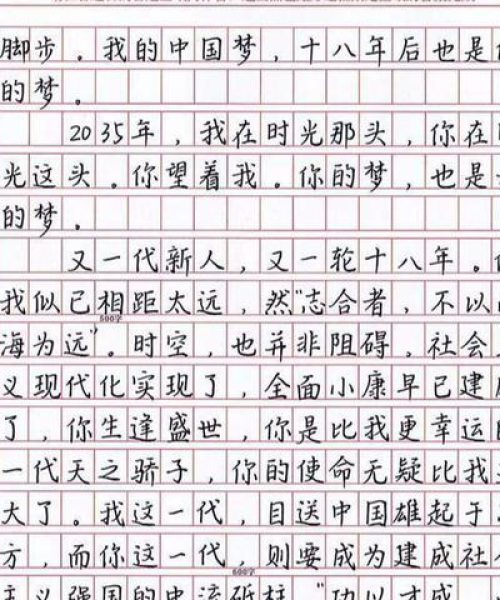 脚步。我的中国梦，十八年后也是
的梦。
2035年，我在时光那头，你在
光这头。你望着我。你的梦，也是
的梦。
又一代新人，又一轮十八年。
我似已相距太远，然“志合者，不以
500字
海为远”。时空，也并非阻碍，社会
义现代化实现了，全面小康早已建
了，你生逢盛世，你是比我更幸运
一代天之骄子，你的使命无疑比我
大了。我这一代，目送中国雄起于
方，而你这一代，则要成为建成社
600字
主义强国的中流砥柱。“功以才成，